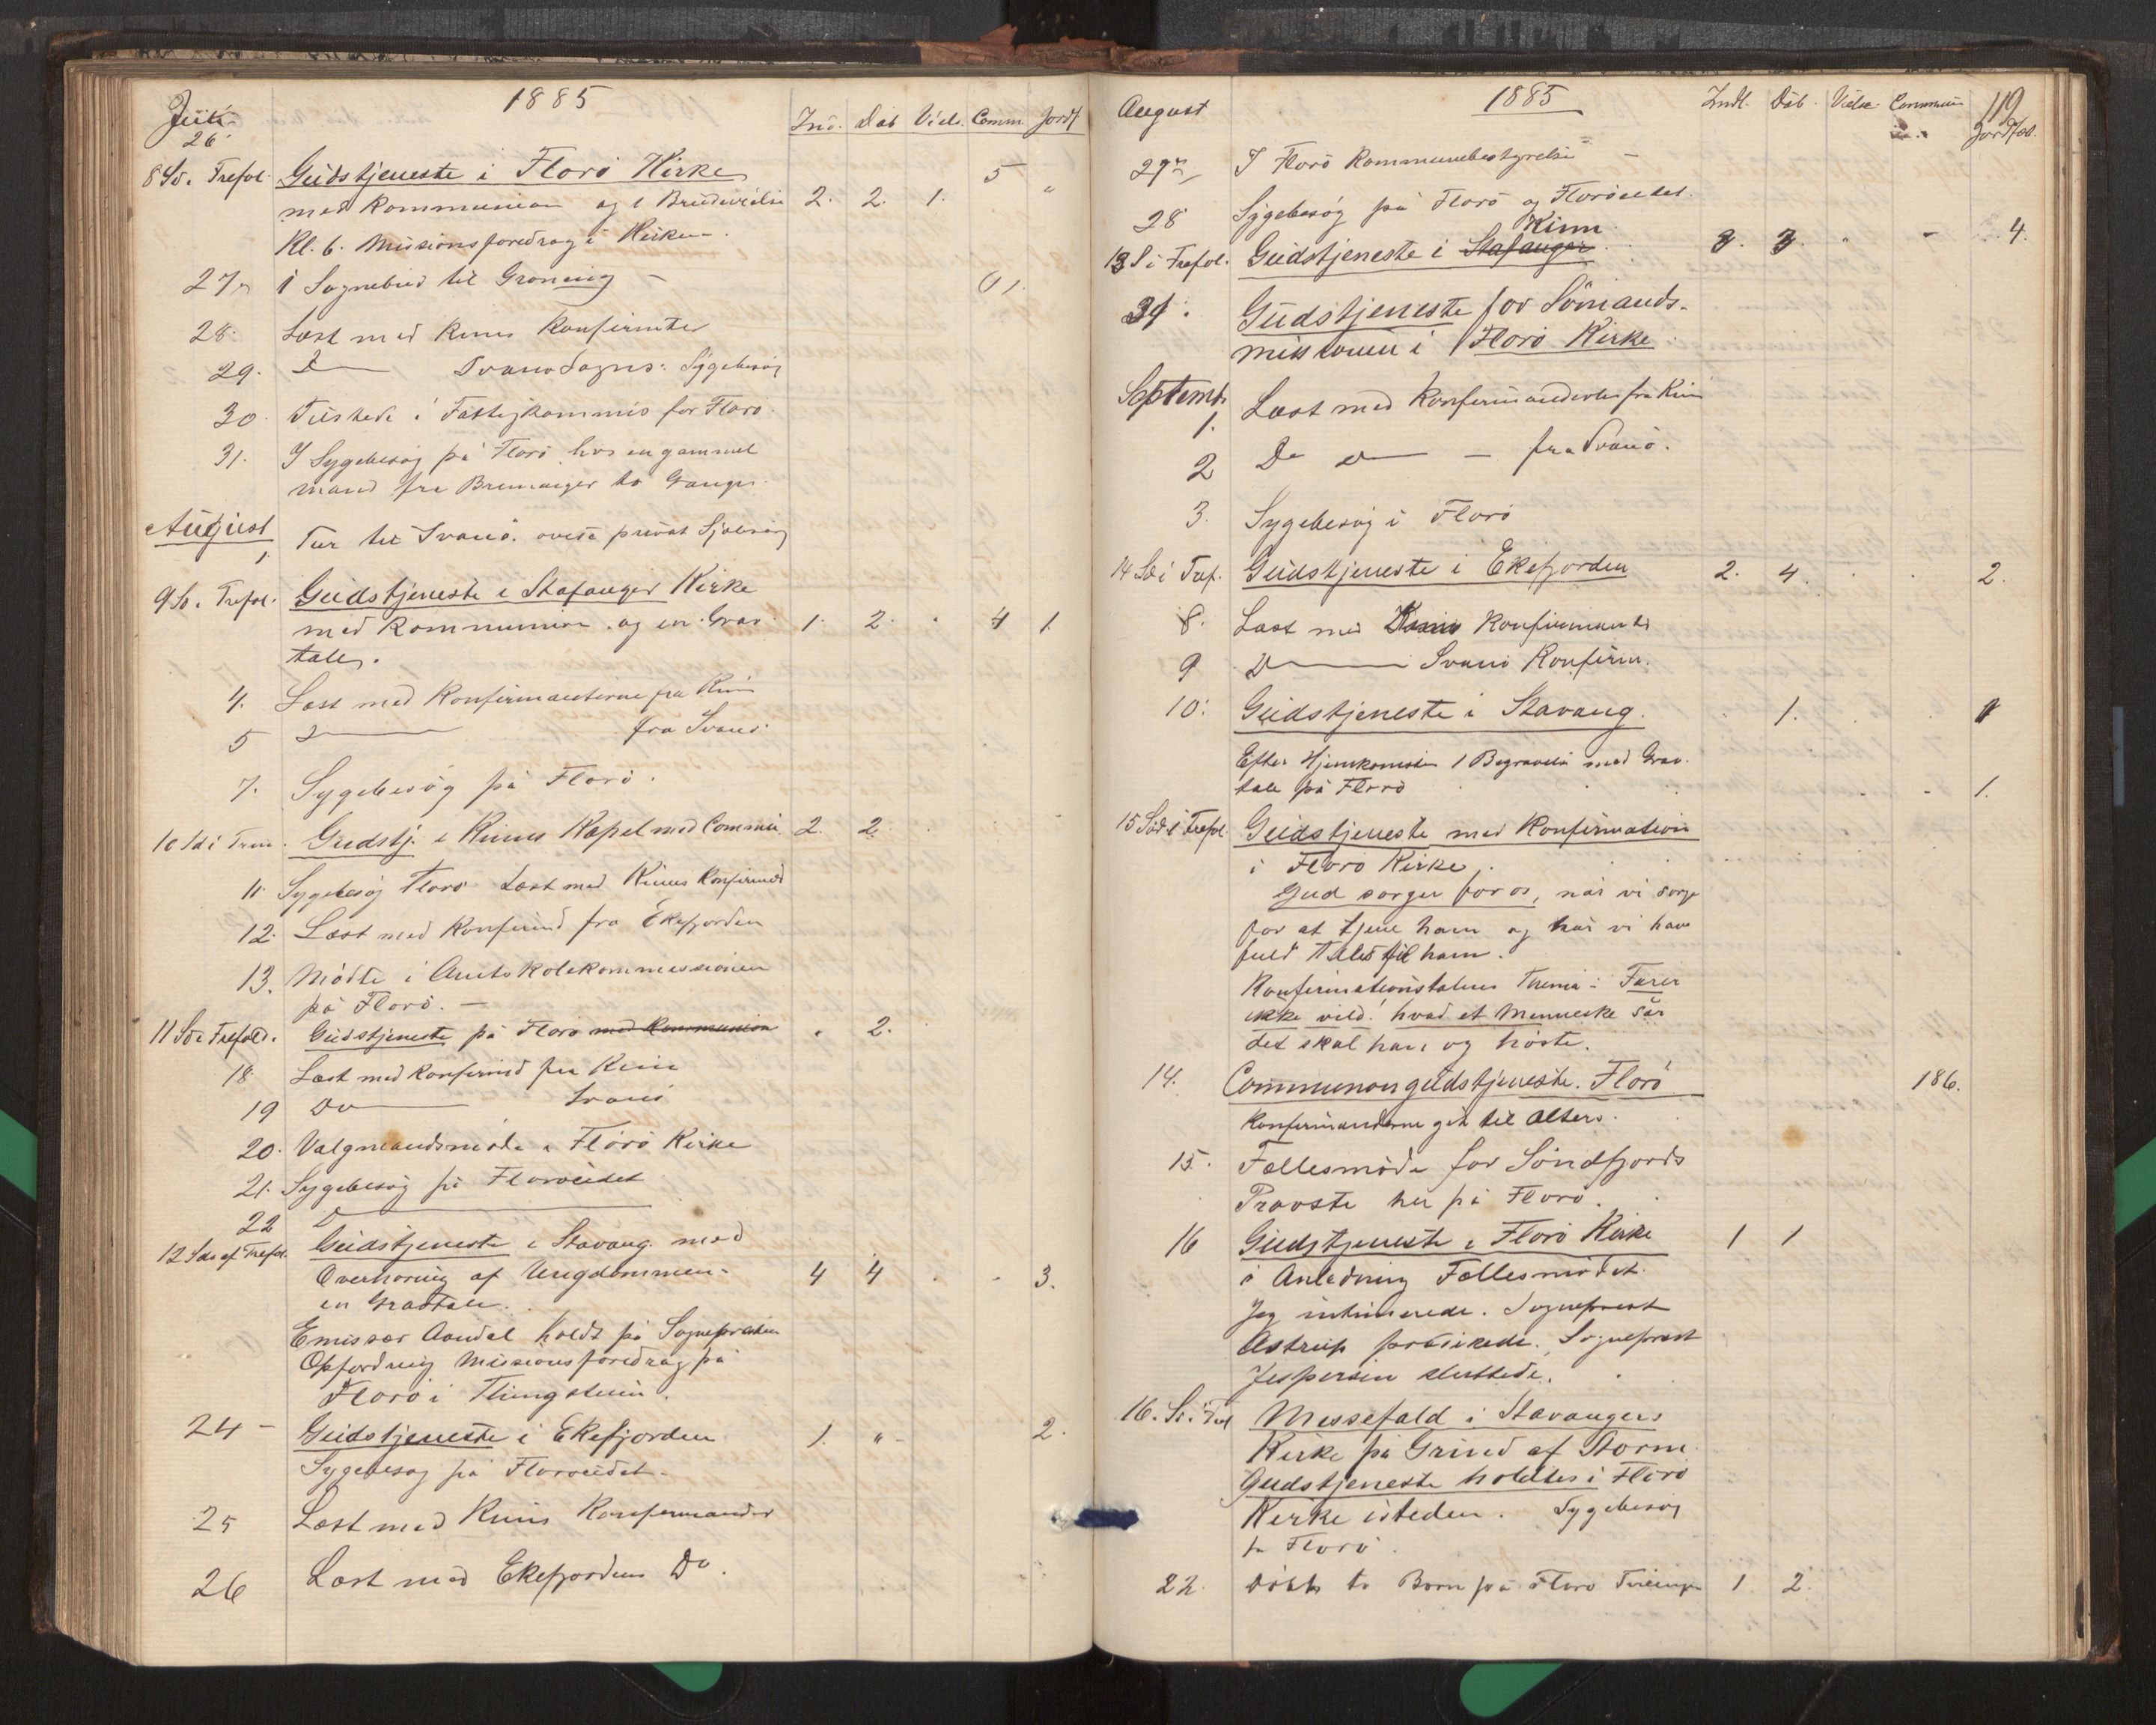 Juli 1885 Ind. Dåb Viels. Comm Jordf
26
8 Sø. Trefol. Gudstjeneste i Florö Kirke 5
med Kommunion og 1 Brudevielse 2. 2. 1. "
Kl. 6. Missionsforedrag i Kirken.
27 1 Sognebud til Groning
28. Læst med Kinns Konfirmter
29. Do Svanø Sogns. Sygebesøg
30. Tilstede i Fattigkommis for Florö.
31. I Sygebesög på Florö hos en gammel
mand fra Bremanger to Gange.
August
1 Tur til Svanö. privat Sjælesorg
9 Sö. Trefol. Gudstjeneste i Stafanger Kirke
med Kommunion og en Grav- 1. 2. . 4 1.
tale.
4. Læst med Konfirmanterne fra Kinn
5 D fra Svanö.
7. Sygebesög på Florö.
10 Sd i Gudstj. i Kinns Kapel med Commu 2. 2.
11 Sygebesög Florö Læst med Kinns Konfirmd
12. Læst med Konfirmd fra Ekefjorden
13. Mödte i Amtskolekommissionen
på Florö. —
11 Sö. Trefold. Gudstjeneste på Florö med Kommunion . 2.
18 Læst med Konfirmd fra Kinn
19 Do Svanö
20. Valgmandsmöde i Florö Kirke
21. Sygebesög på Floröeidet
22 D
12 Sds ef Trefol. Gudstjeneste i Stavang med
Overhöring af Ungdommen. 4 4 . . 3.
en Gravtale.
Emissær Aandal holdt på Sognepræsten
Opfordring Missionsforedrag på
Florö i Thingstuen.
24 — Gudstjeneste i Ekefjorden 1. " 2.
Sygebesøg på Florøeidet.
25 Læst med Kinns Konfirmander
26 Læst med Ekefjordens Do.
August 1885 Indl. Dåb. Vielse. Commun 119
Jordfæl.
27 I Florö Kommunebestyrelse —
28 Sygebesög på Florö og Floröeidet.
Kinn
13 S i Trefol. Gudstjeneste i Stafanger 3. 3. " - 4.
31. Gudstjeneste for Sömands-
missionen i Florö Kirke.
Septemb.
1. Læst med Konfirmanderne fra Kinn
2 Do — fra Svanö.
3. Sygebesög i Florö
14 Sö i Tref. Gudstjeneste i Ekefjorden 2. 4. . . 2.
8. Læst med Kinns Konfirmands
9 D Svanö Konfirm.
10. Gudstjeneste i Stavang. 1. 1
Efter Hjemkomsten 1 Begravelse med Grav-
tale på Florö 1.
15 Sød i Trefol. Gudstjeneste med Konfirmation
i Florö Kirke.
Gud sorger for os, når vi sørge
for at tjene ham og når vi have
fuld Tillid til ham.
Konfirmationstalens Thema: Farer
ikke vild! hvad et Menneske sår
det skal han og höste.
14. Communongudstjeneste. Florö 186.
Konfirmanderne gik til Alters.
15. Fællesmöde for Söndfjords
Provsti her på Florö.
16 Gudstjeneste i Florö Kirke 1 1
i Anledning Fællesmödet.
Jeg intimerede. Sognepræst
Astrup prædikede. Sognepræst
Jespersen sluttede.
16. Sö. i Tref Messefald i Stavangers
Kirke på Grund af Storm.
Gudstjeneste holdtes i Florö
Kirke isteden. Sygebesög
på Florö.
22. Döbt to Börn på Florö 1 2.